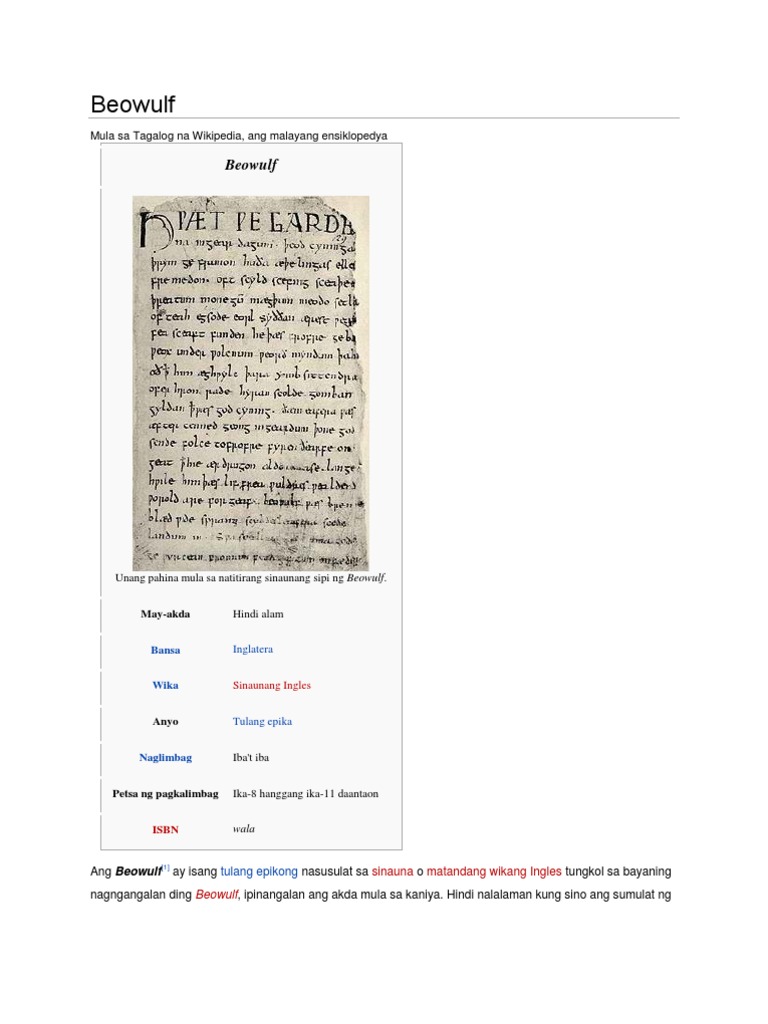 Beowulf
Mula sa Tagalog na Wikipedia, ang malayang ensiklopedya
Beowulf
HǷÆT ǷE GARDE
na ingear dagum. þeod cyninga
þrym ge frunon huða æþelingas elle
fremedon. oft scyld scefing sceaþe
þreatum monegū mægþum meodo setla
of teah egsode eorl syððan ærest
fea sceaft funden he þæs frofre geba
ƿeox under ƿolcnum ƿeorð myndum þah
oð þ him æghƿylc þara ymb sittendra
ofer hron rade hyran scolde gomban
gyldan þ ƿæs god cyning. ðæm eafera ƿæs
æfter cenned geong ingeardum þone god
sende folce tofrofre fyren ðearfe on
geat þ hie ær drugon aldor ase. lange
hƿile him þæs lif frea ƿuldres
ƿorold are for geaf. beoƿulf ƿæs
blæd ƿide sprang scyldes eafera scede
landum in
Unang pahina mula sa natitirang sinaunang sipi ng Beowulf.
May-akda Hindi alam
Bansa Inglatera
Wika Sinaunang Ingles
Anyo Tulang epika
Naglimbag Iba't iba
Petsa ng pagkalimbag Ika-8 hanggang ika-11 daantaon
ISBN wala
Ang Beowulf[1] ay isang tulang epikong nasusulat sa sinauna o matandang wikang Ingles tungkol sa bayaning
nagngangalan ding Beowulf, ipinangalan ang akda mula sa kaniya. Hindi nalalaman kung sino ang sumulat ng